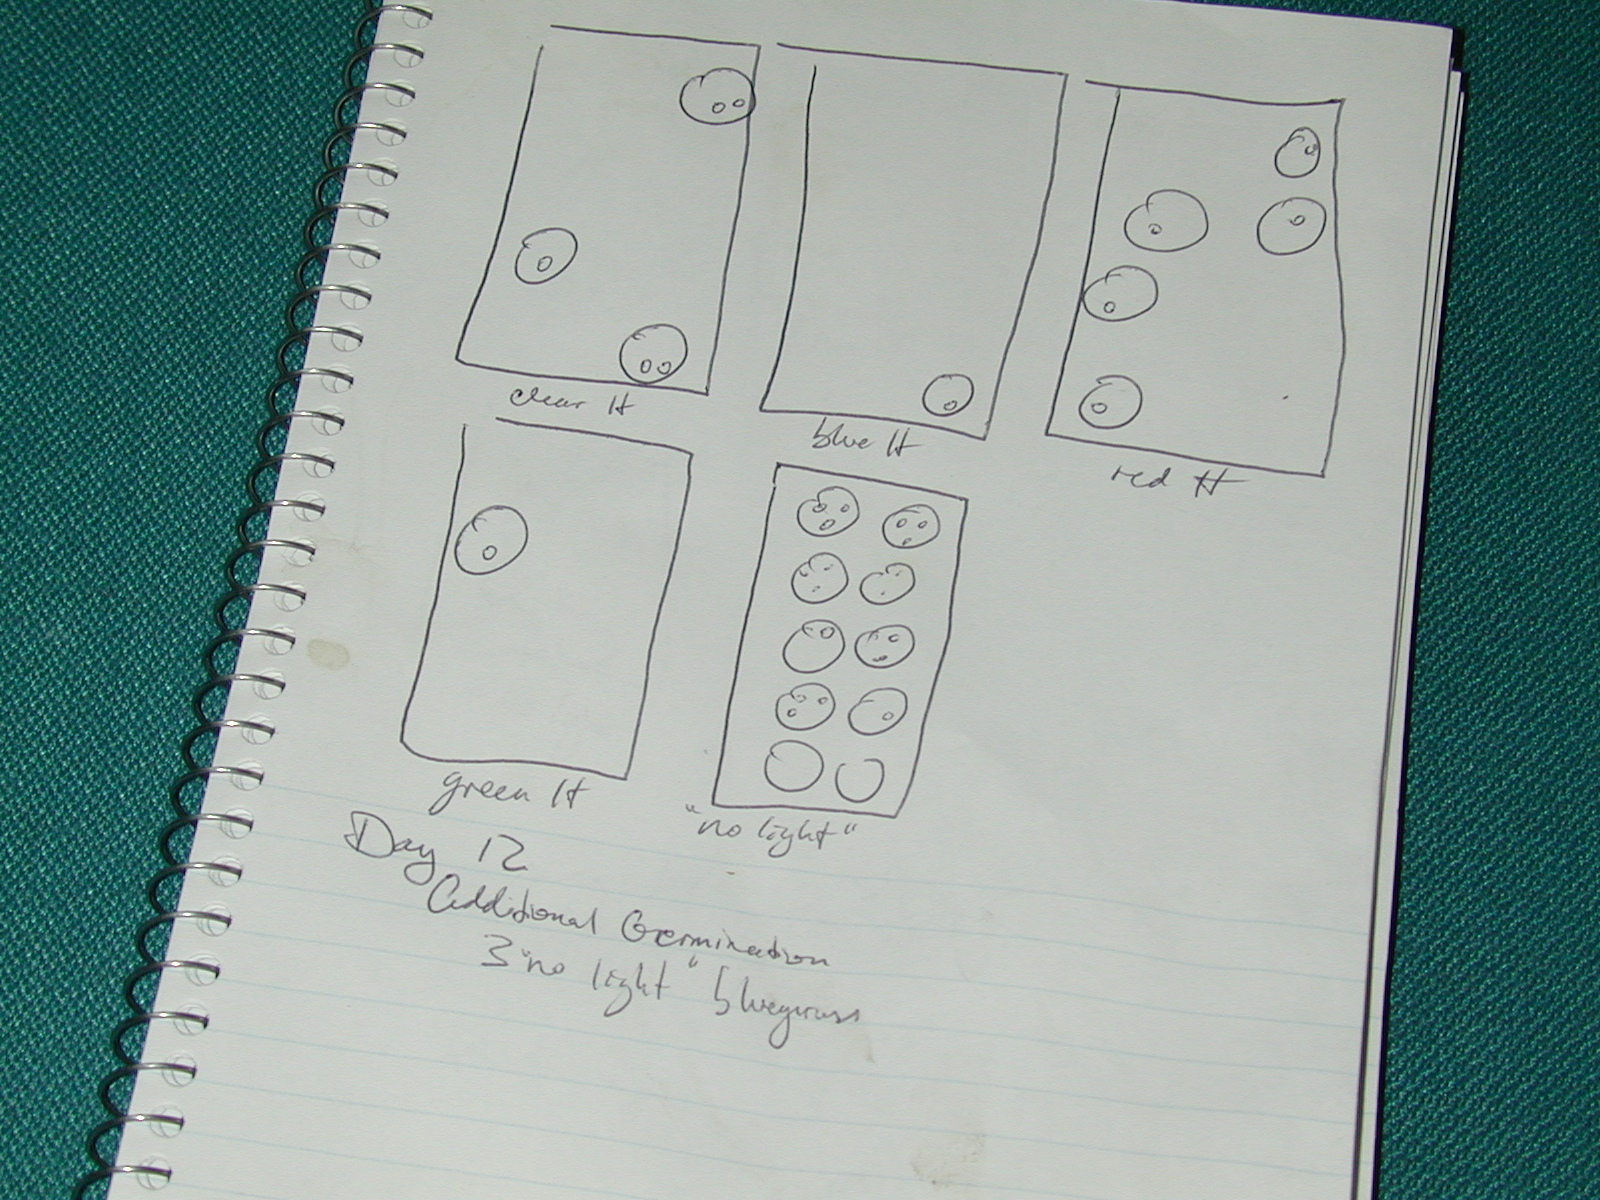 clear lt
blue lt
red lt
green lt
"no light"
Day 12
Additional Germination
3 "no light" bluegrass